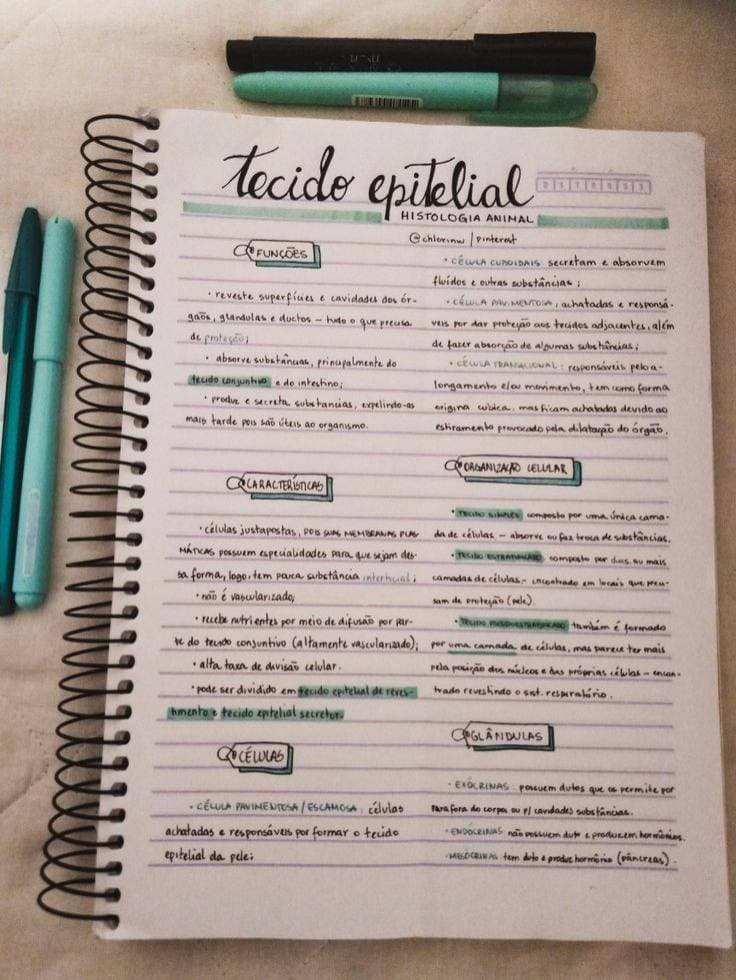 tecido epitelial
HISTOLOGIA ANIMAL
D S T Q Q S S
@chlorinw / pinterest
FUNÇÕES
• reveste superfícies e cavidades dos ór-
gãos, glândulas e ductos – tudo o que precisa
de proteção;
• absorve substâncias, principalmente do
tecido conjuntivo e do intestino;
• produz e secreta substancias, expelindo-as
mais tarde pois são úteis ao organismo.
CARACTERÍSTICAS
• células justapostas, POIS SUAS MEMBRANAS PLAS
MÁTICAS possuem especialidades para que sejam des-
sa forma, logo, tem pouca substância intersticial;
• não é vascularizado;
• recebe nutrientes por meio de difusão por par-
te do tecido conjuntivo (altamente vascularizado);
• alta taxa de divisão celular.
• pode ser dividido em tecido epitelial de reves-
timento e tecido epitelial secretor.
CÉLULAS
• CÉLULA PAVIMENTOSA / ESCAMOSA: células
achatadas e responsáveis por formar o tecido
epitelial da pele;
• CÉLULA CUBOIDAIS: secretam e absorvem
fluídos e outras substâncias;
• CÉLULA PAVIMENTOSA: achatadas e responsá-
veis por dar proteção aos tecidos adjacentes, além
de fazer absorção de algumas substâncias;
• CÉLULA TRANSICIONAL: responsáveis pelo a-
longamento e/ou movimento, tem como forma
origina cúbica, mas ficam achatadas devido ao
estiramento provocado pela dilatação do órgão.
ORGANIZAÇÃO CELULAR
• TECIDO SIMPLES: composto por uma única cama-
da de células – absorve ou faz troca de substâncias.
• TECIDO ESTRATIFICADO: composto por duas ou mais
camadas de células – encontrado em locais que preci-
sam de proteção (pele).
• TECIDO PSEUDOESTRATIFICADO: também é formado
por uma camada de células, mas parece ter mais
pela posição dos núcleos e das próprias células – encon-
trado revestindo o sist. respiratório.
GLÂNDULAS
• EXÓCRINAS: possuem dutos que os permite por
para fora do corpo ou p/ cavidades substâncias.
• ENDÓCRINAS: não possuem duto e produzem hormônios.
• MESÓCRINAS: tem duto e produz hormônio (pâncreas).